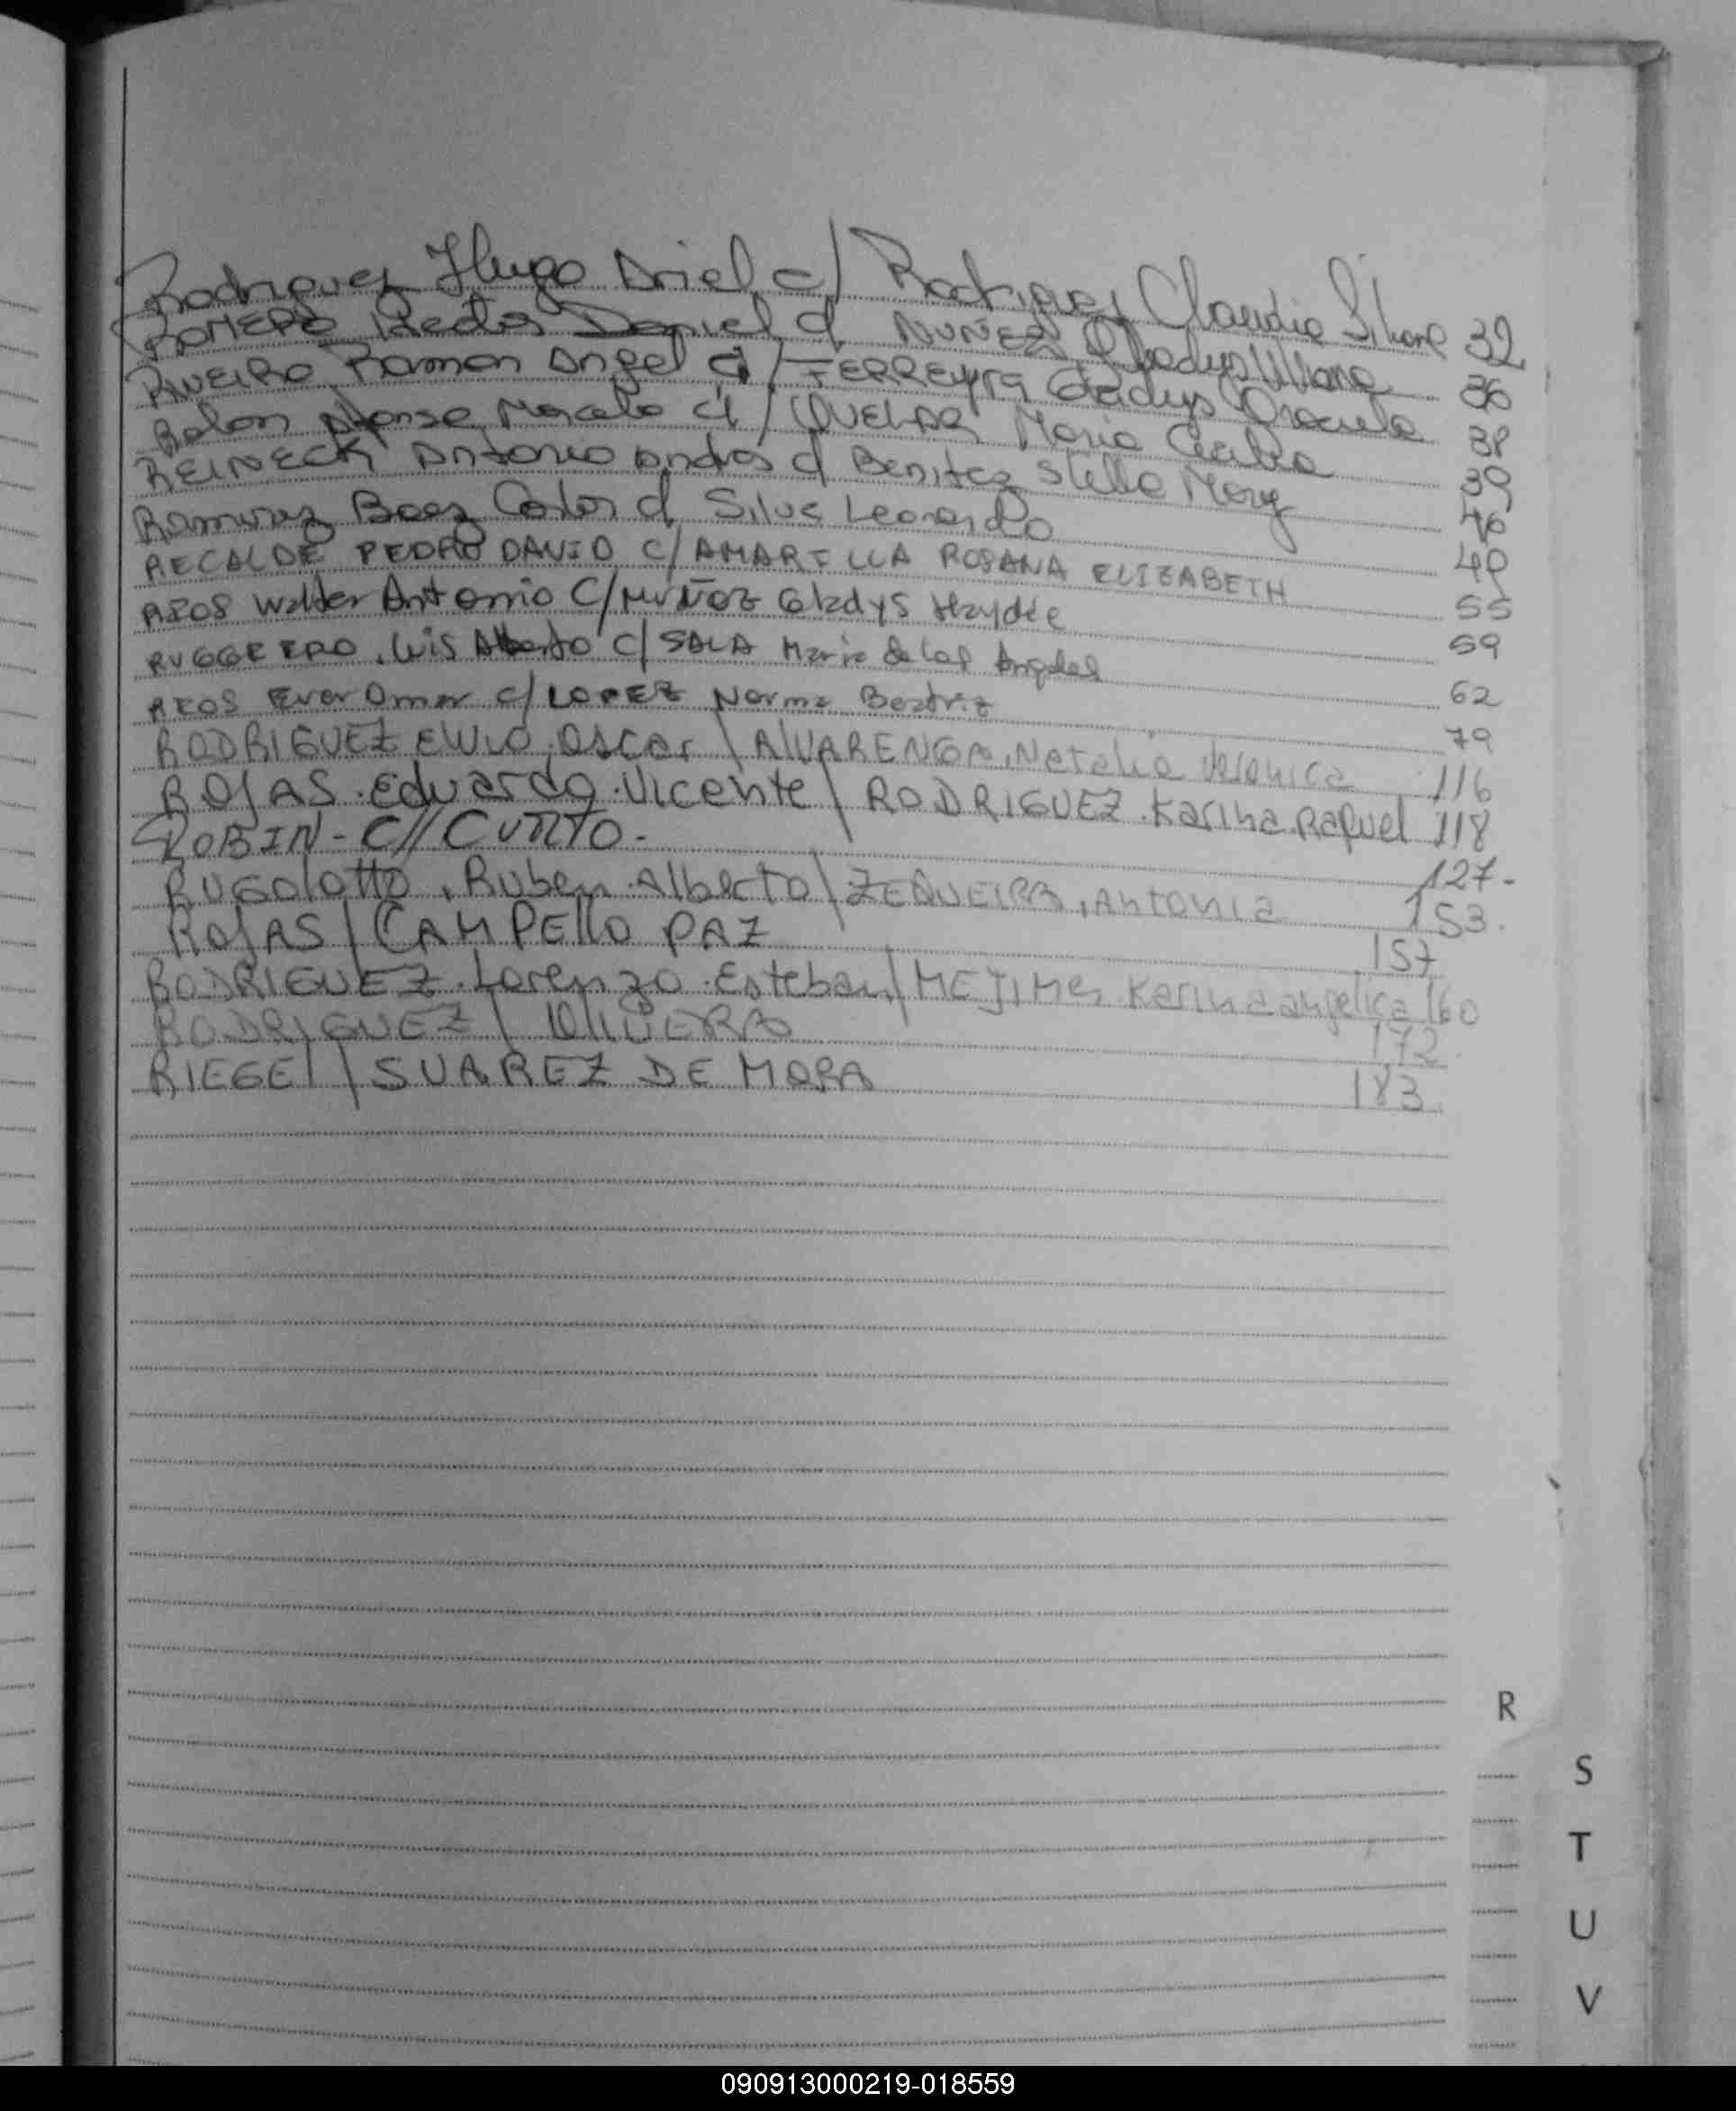 Rodriguez Hugo Ariel c/ Rodriguez Claudia Silvana 32
ROMERO Hector Daniel c/ NUÑEZ Gladys Liliana 36
RIVEIRO Ramon Angel c/ FERREYRA Gladys Graciela 38
Rolon Alfonso Marcelo c/ Maria Cecilia 39
REINECK Antonio Andres c/ Benitez Stella Mary 46
Ramirez Baez Carlos c/ Silva Leonardo 49
RECALDE PEDRO DAVID C/ AMARILLA ROSANA ELIZABETH 55
RIOS Walter Antonio C/ MUÑOZ Gladys Haydée 59
RUGGERRO, Luis Alberto C/ SALA Maria de los Angeles 62
RIOS Ever Omar C/ LOPEZ Norma Beatriz 79
RODRIGUEZ ELVIO, OSCAR / ALVARENGA, Natalia Veronica 116
ROJAS. Eduardo. Vicente / RODRIGUEZ. Karina. Raquel 118
ROBIN - C// CURTO - 127-
RUGOLOTTO, Ruben. Alberto / ZEQUEIRA, Antonia 153.
ROJAS / CAMPELLO PAZ 157
RODRIGUEZ. Lorenzo. Esteban / Karina angelica 160
RODRIGUEZ / OLIVERA 172.
RIEGEL / SUAREZ DE MORA 183
R
S
T
U
V
090913000219-018559